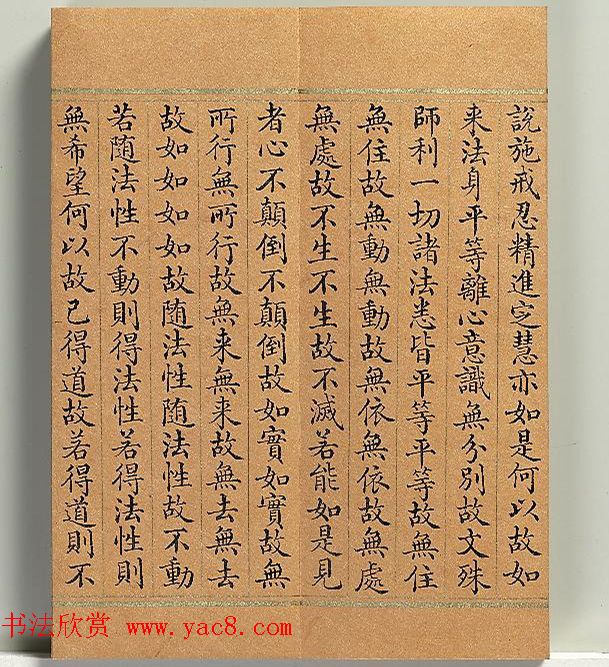 說施戒忍精進定慧亦如是何以故如
来法身平等離心意識無分别故文殊
師利一切諸法悉皆平等平等故無住
無住故無動無動故無依無依故無處
無處故不生不生故不滅若能如是見
者心不顛倒不顛倒故如實如實故無
所行無所行故無来無来故無去無去
故如如如如故随法性随法性故不動
若随法性不動則得法性若得法性則
無希望何以故已得道故若得道則不
书法欣赏 www.yac8.com